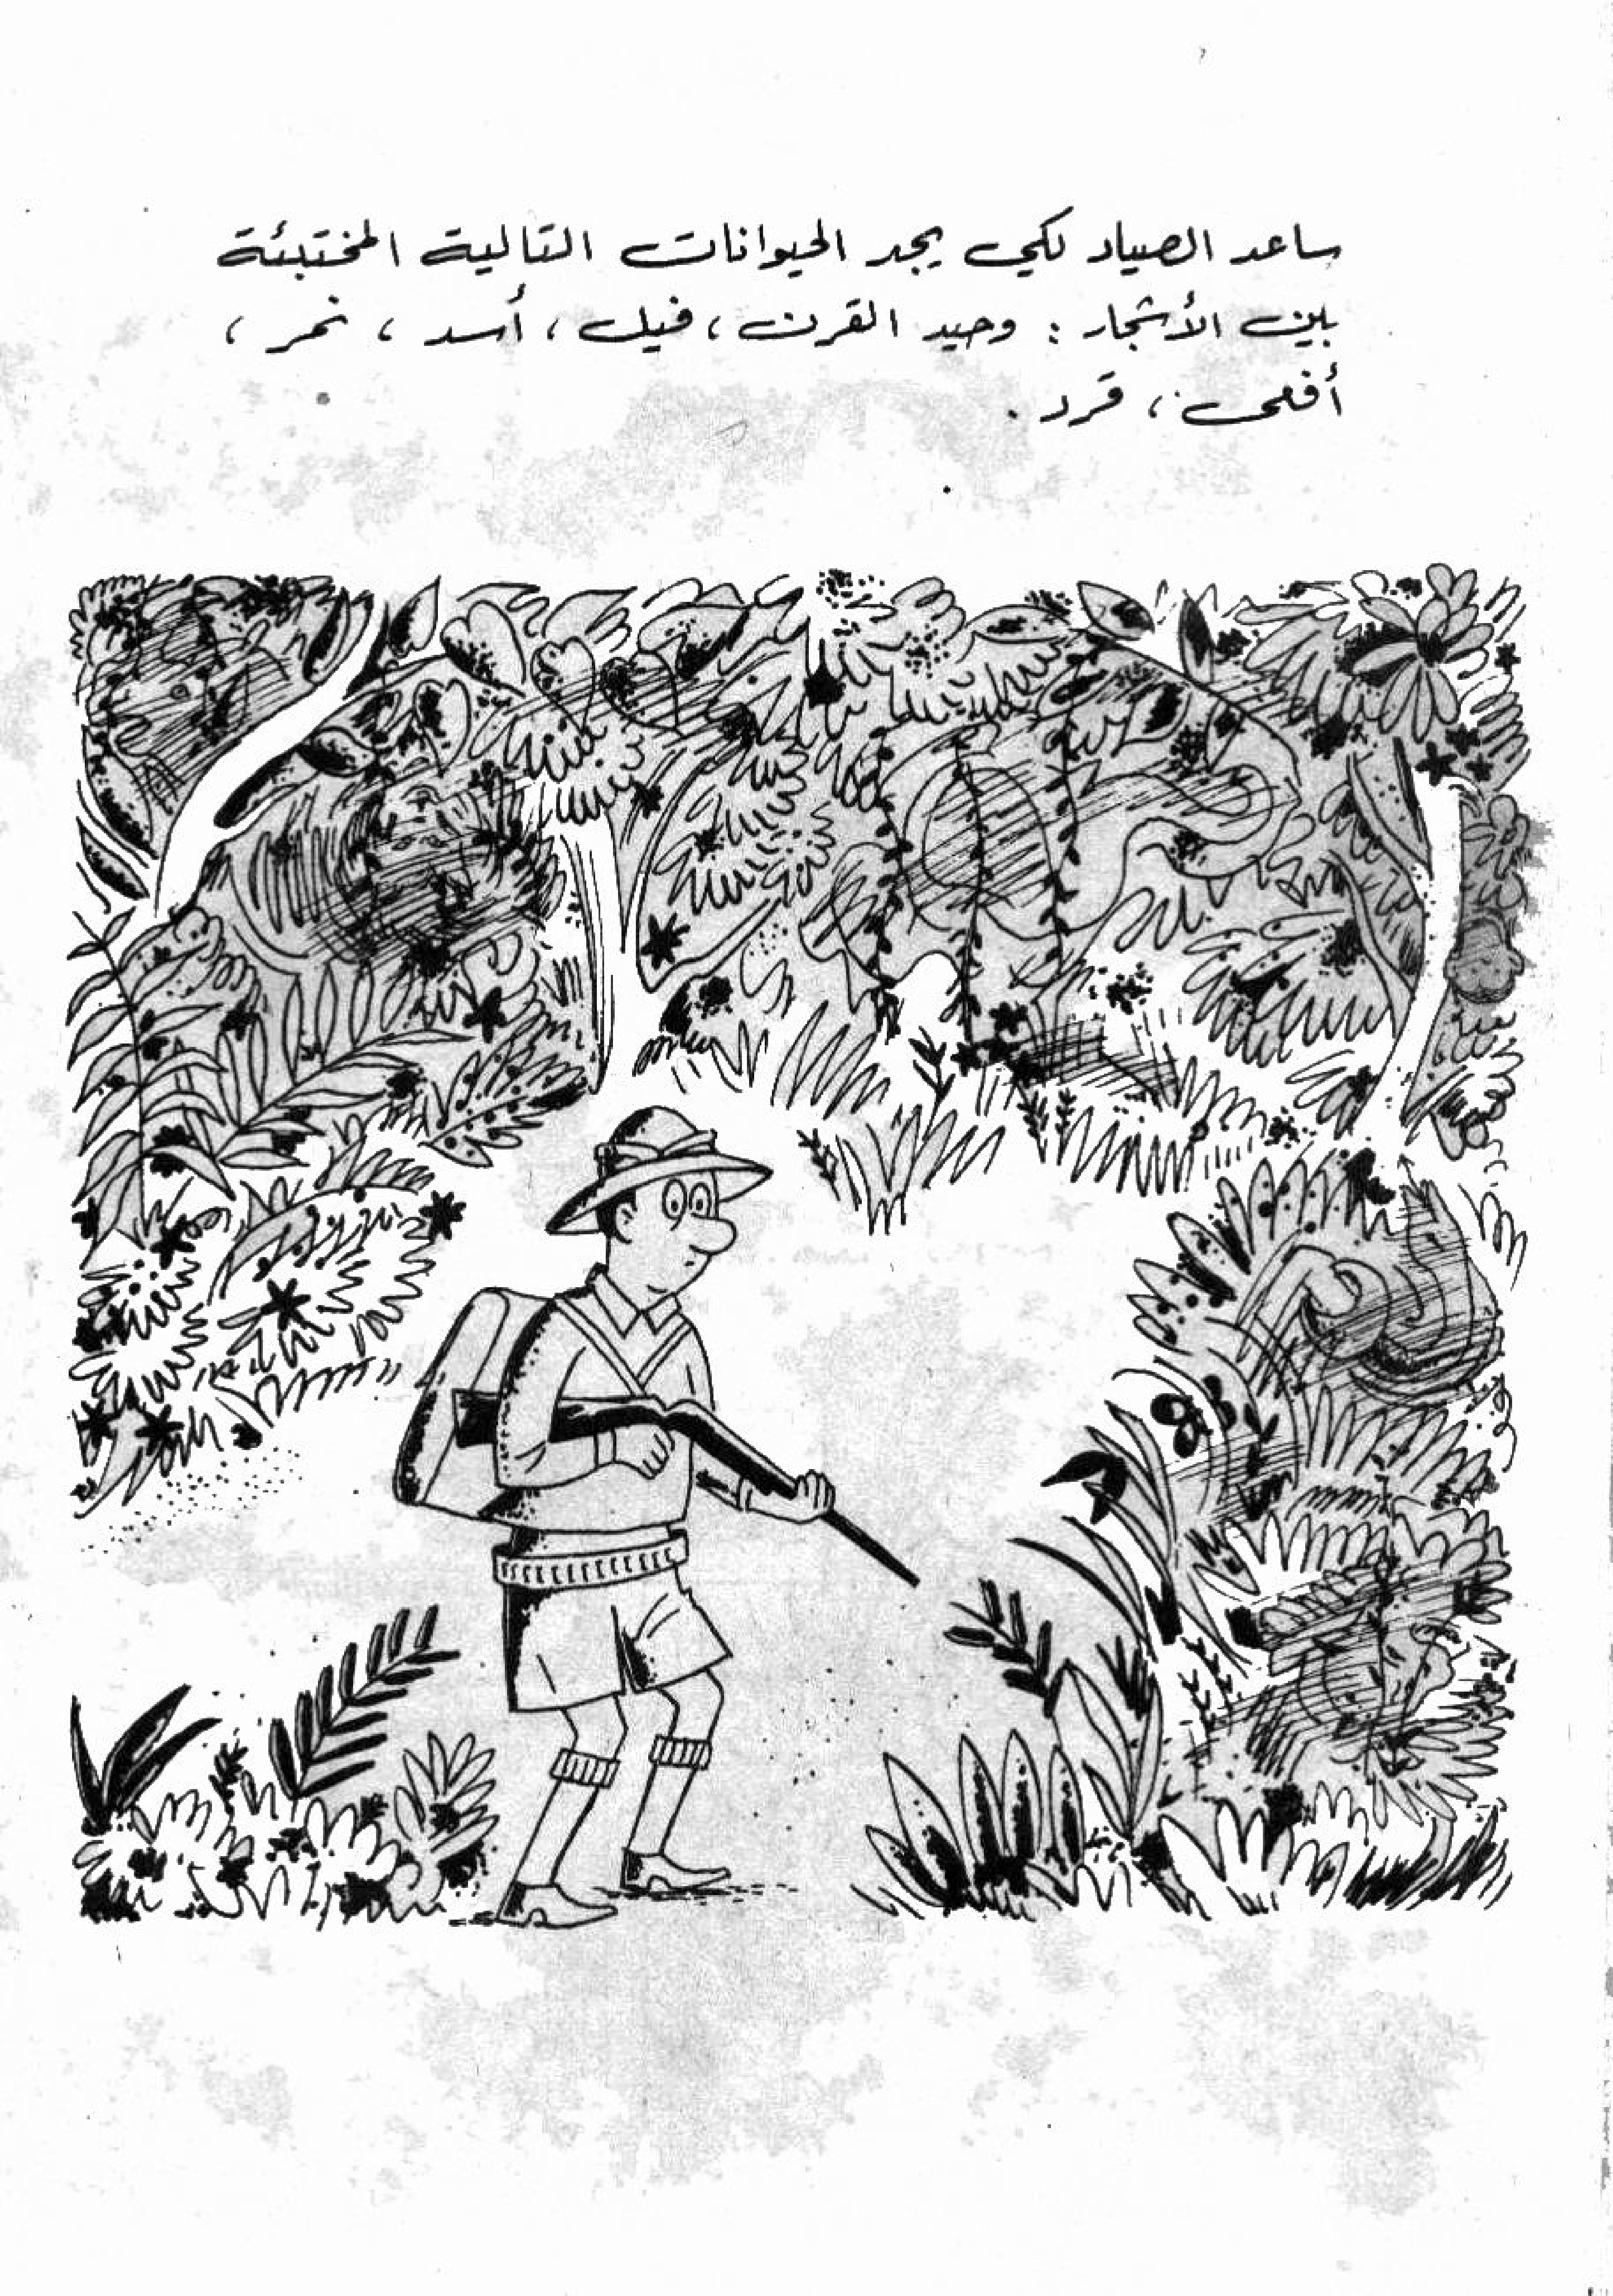 ساعد الصياد لكي يجد الحيوانات التالية المختبئة
بين الأشجار : وحيد القرن ، فيل ، أسد ، نمر ،
أفعى ، قرد .